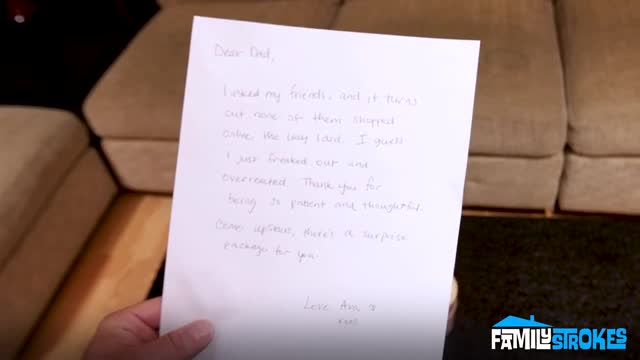 Dear Dad,
I asked my friends, and it turns
out none of them shopped
online the way I did. I guess
I just freaked out and
overreacted Thank you for
being so patient and thoughtful.
Come upstairs, there's a surprise
package for you.
Love
FAMILYSTROKES